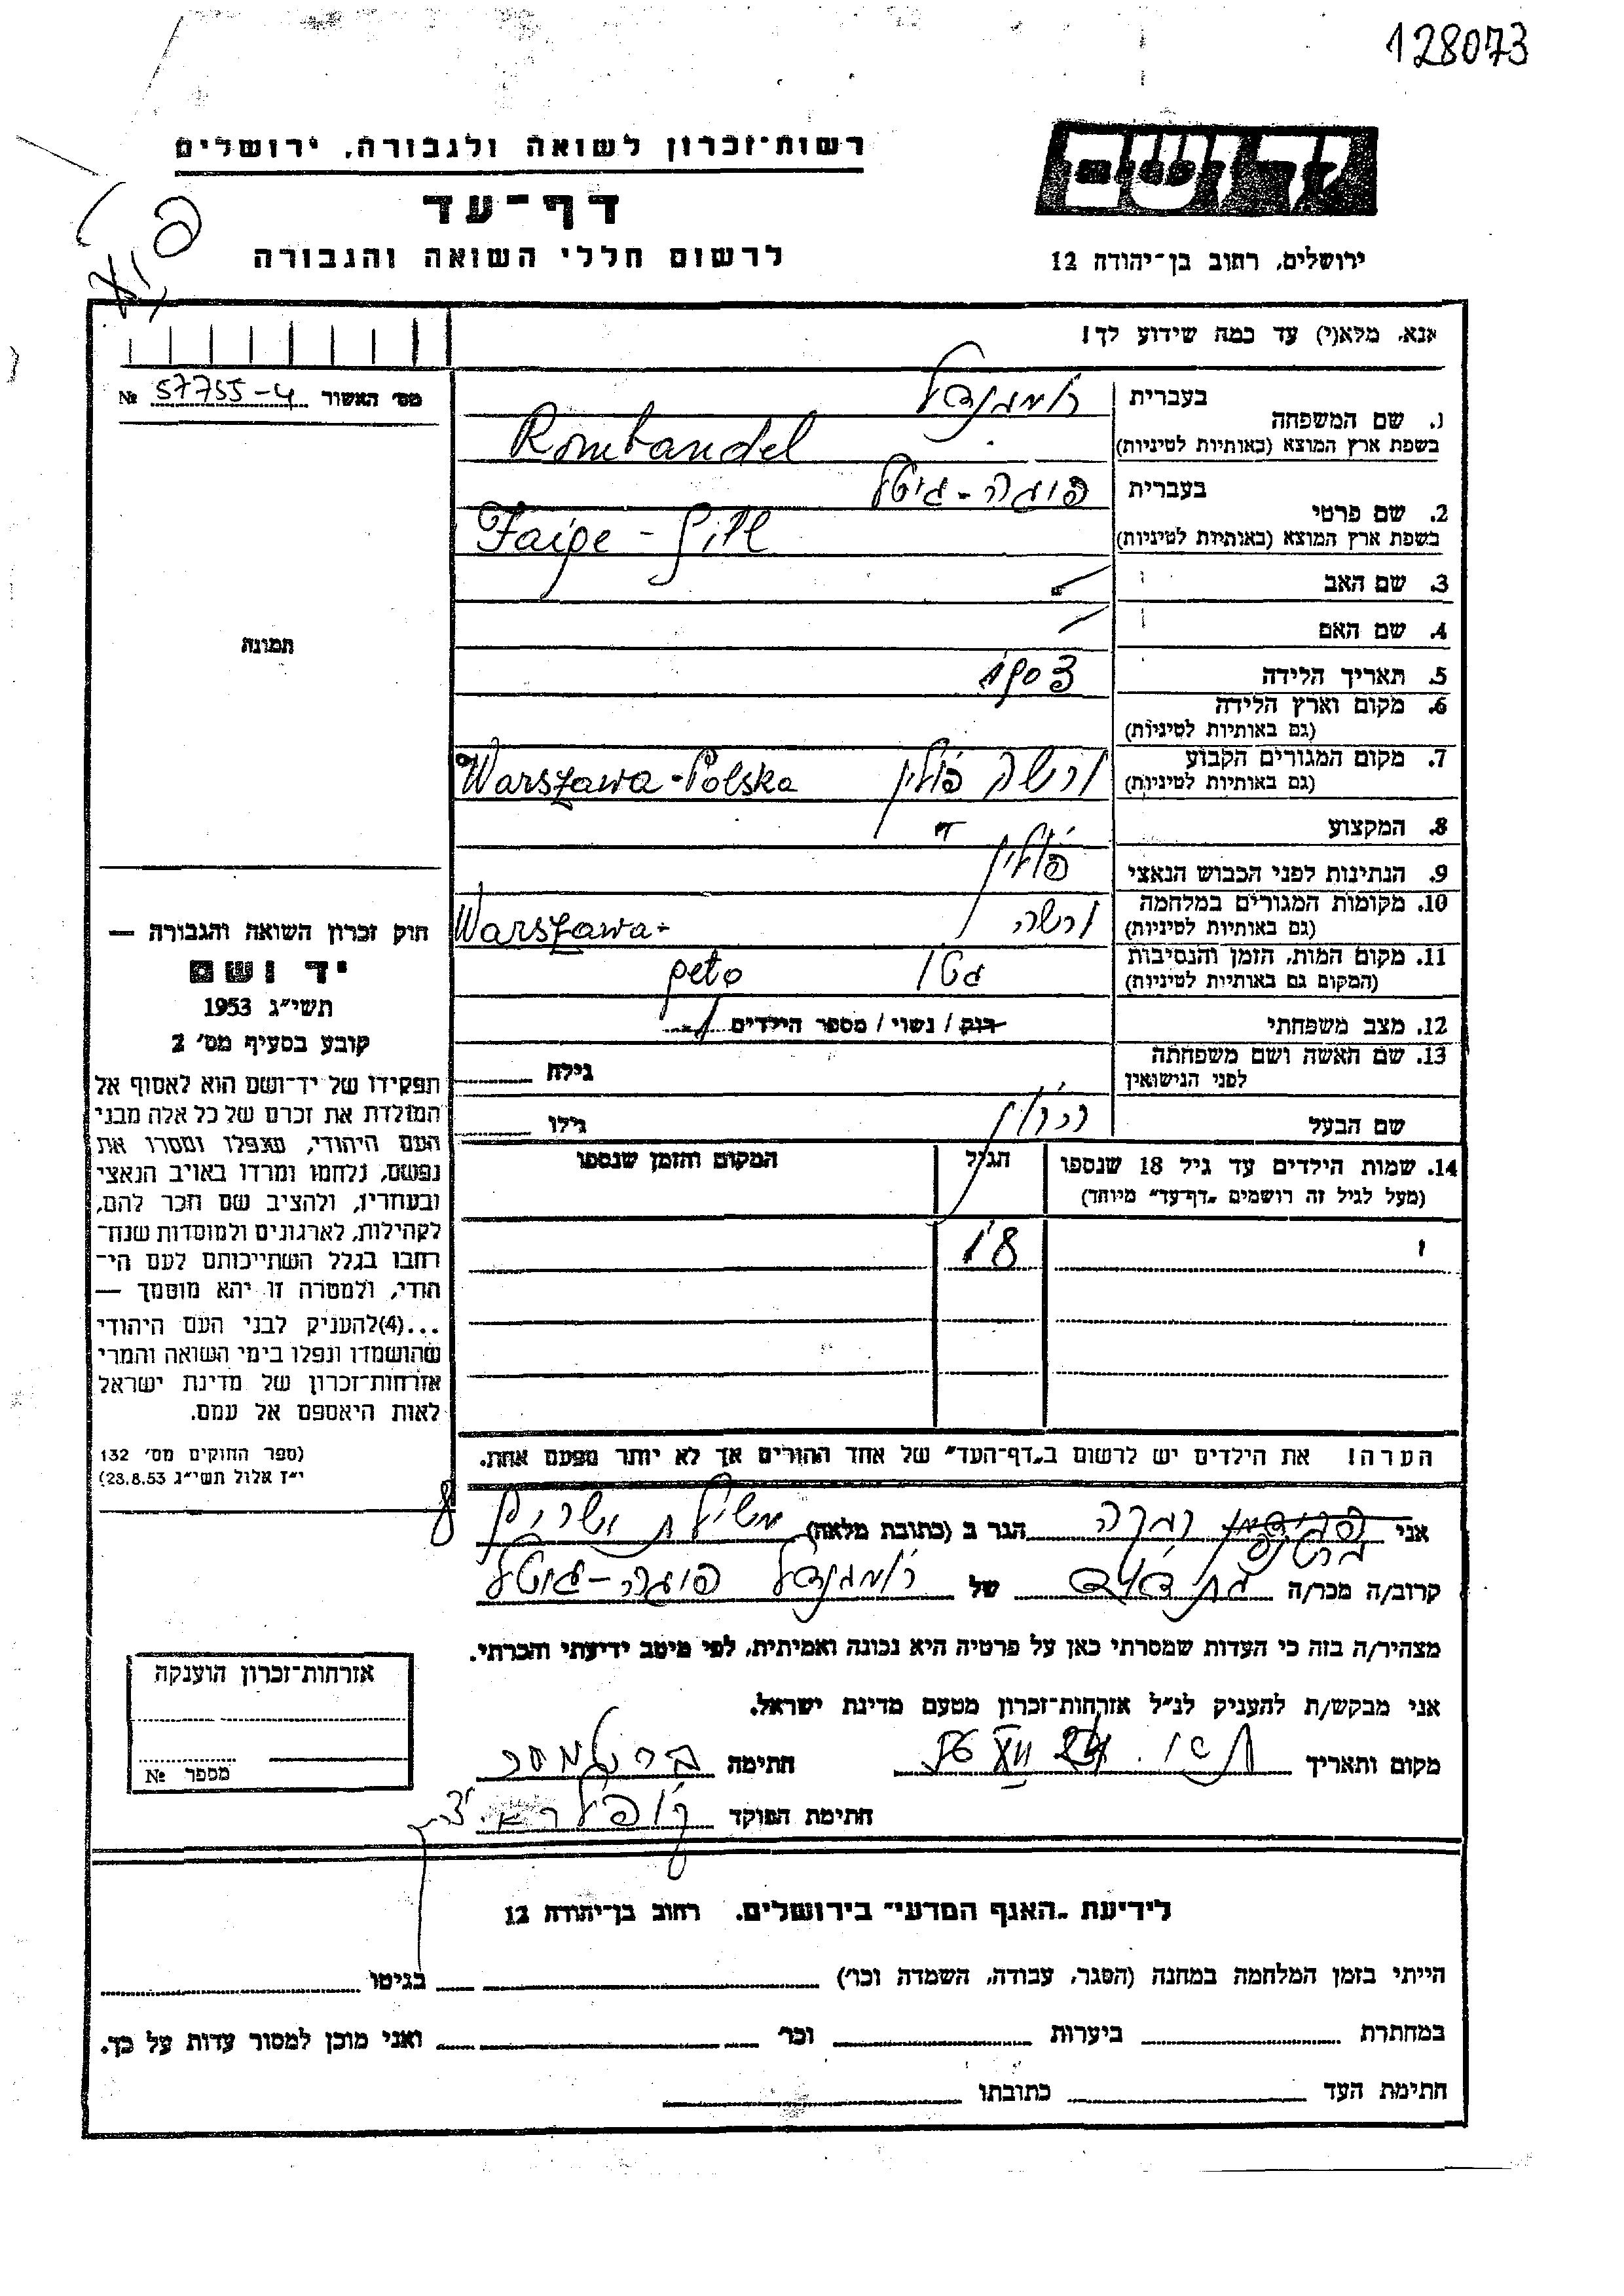 128073
רשות־זכרון לשואה ולגבורה, ירושלים
דף־עד
לרשום חללי השואה והגבורה
יד ושם
ירושלים, רחוב בן־יהודה 12
אנא, מלא(י) עד כמה שידוע לך!
מס׳ האשור 57755-4 №
תמונה
1. שם המשפחה
בעברית רומבנדל
בשפת ארץ המוצא (באותיות לטיניות) Rombandel
2. שם פרטי
בעברית פייגה-גיטל
בשפת ארץ המוצא (באותיות לטיניות) Faige - Gitl
3. שם האב
4. שם האם
5. תאריך הלידה 1903
6. מקום וארץ הלידה
(גם באותיות לטיניות)
7. מקום המגורים הקבוע ורשה פולין Warszawa-Polska
(גם באותיות לטיניות)
8. המקצוע
9. הנתינות לפני הכבוש הנאצי פולין
10. מקומות המגורים במלחמה ורשה Warszawa-
(גם באותיות לטיניות)
11. מקום המות, הזמן והנסיבות גטו geto
(המקום גם באותיות לטיניות)
12. מצב משפחתי רוק / נשוי / מספר הילדים 1
13. שם האשה ושם משפחתה
לפני הנישואין
גילה
שם הבעל
גילו
14. שמות הילדים עד גיל 18 שנספו
(מעל לגיל זה רושמים „דף־עד״ מיוחד)
הגיל
המקום והזמן שנספו
1 18
הערה! את הילדים יש לרשום ב„דף־העד״ של אחד ההורים אך לא יותר מפעם אחת.
חוק זכרון השואה והגבורה —
יד ושם
תשי״ג 1953
קובע בסעיף מס׳ 2
תפקידו של יד־ושם הוא לאסוף אל
המולדת את זכרם של כל אלה מבני
העם היהודי, שנפלו ומסרו את
נפשם, נלחמו ומרדו באויב הנאצי
ובעוזריו, ולהציב שם וזכר להם,
לקהילות, לארגונים ולמוסדות שנח־
רבו בגלל השתייכותם לעם הי־
הודי, ולמטרה זו יהא מוסמך —
...(4)להעניק לבני העם היהודי
שהושמדו ונפלו בימי השואה והמרי
אזרחות־זכרון של מדינת ישראל
לאות היאספם אל עמם.
(ספר החוקים מס׳ 132
י״ז אלול תשי״ג 28.8.53)
אני רבקה הגר ב (כתובת מלאה)
קרוב/ה מכר/ה בת דודה של רומבנדל פייגה-גיטל
מצהיר/ה בזה כי העדות שמסרתי כאן על פרטיה היא נכונה ואמיתית, לפי מיטב ידיעתי והכרתי.
אני מבקש/ת להעניק לנ״ל אזרחות־זכרון מטעם מדינת ישראל.
מקום ותאריך 24 XII 56 חתימה
חתימת הפוקד
אזרחות־זכרון הוענקה
מספר №
לידיעת „האגף המדעי״ בירושלים. רחוב בן־יהודה 12
הייתי בזמן המלחמה במחנה (הסגר, עבודה, השמדה וכו׳) בגיטו
במחתרת ביערות וכו׳ ואני מוכן למסור עדות על כך.
חתימת העד כתובתו